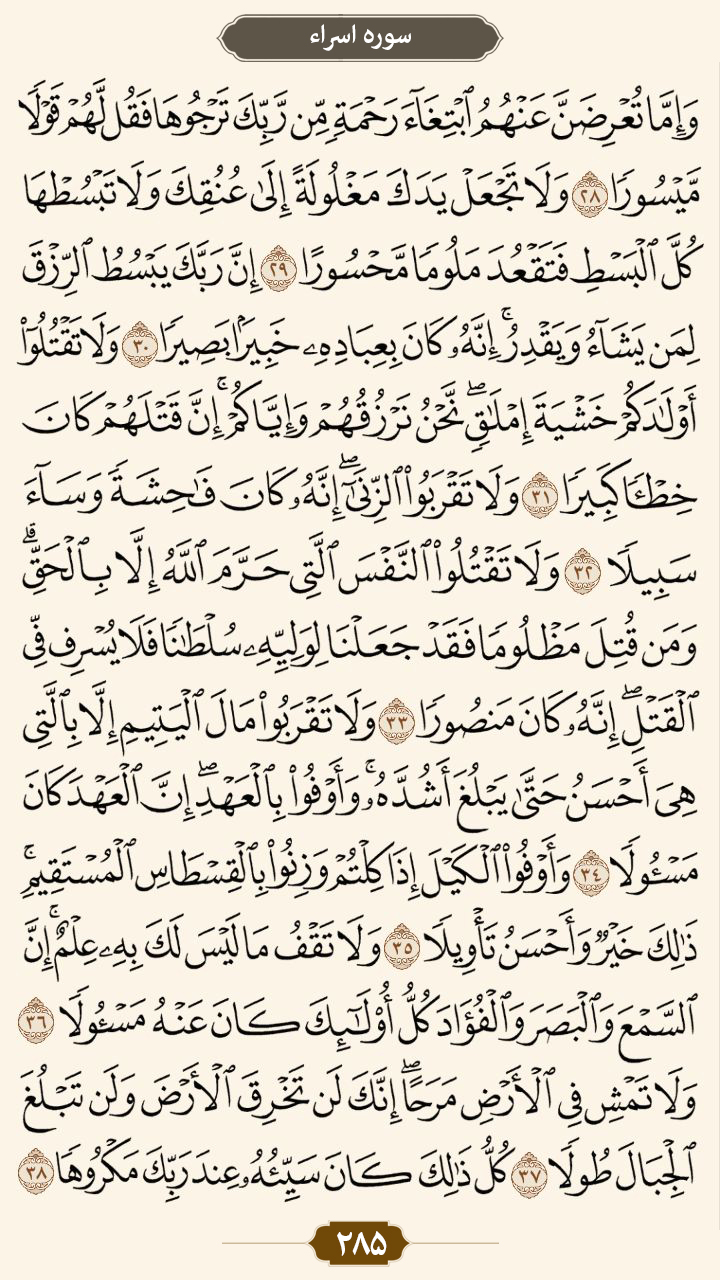 سوره اسراء
وَإِمَّا تُعْرِضَنَّ عَنْهُمُ ٱبْتِغَآءَ رَحْمَةٍ مِّن رَّبِّكَ تَرْجُوهَا فَقُل لَّهُمْ قَوْلًا
مَّيْسُورًا ٢٨ وَلَا تَجْعَلْ يَدَكَ مَغْلُولَةً إِلَىٰ عُنُقِكَ وَلَا تَبْسُطْهَا
كُلَّ ٱلْبَسْطِ فَتَقْعُدَ مَلُومًا مَّحْسُورًا ٢٩ إِنَّ رَبَّكَ يَبْسُطُ ٱلرِّزْقَ
لِمَن يَشَآءُ وَيَقْدِرُ ۚ إِنَّهُۥ كَانَ بِعِبَادِهِۦ خَبِيرًۢا بَصِيرًا ٣٠ وَلَا تَقْتُلُوٓا۟
أَوْلَٰدَكُمْ خَشْيَةَ إِمْلَٰقٍ ۖ نَّحْنُ نَرْزُقُهُمْ وَإِيَّاكُمْ ۚ إِنَّ قَتْلَهُمْ كَانَ
خِطْـًٔا كَبِيرًا ٣١ وَلَا تَقْرَبُوا۟ ٱلزِّنَىٰٓ ۖ إِنَّهُۥ كَانَ فَٰحِشَةً وَسَآءَ
سَبِيلًا ٣٢ وَلَا تَقْتُلُوا۟ ٱلنَّفْسَ ٱلَّتِى حَرَّمَ ٱللَّهُ إِلَّا بِٱلْحَقِّ ۗ
وَمَن قُتِلَ مَظْلُومًا فَقَدْ جَعَلْنَا لِوَلِيِّهِۦ سُلْطَٰنًا فَلَا يُسْرِف فِّى
ٱلْقَتْلِ ۖ إِنَّهُۥ كَانَ مَنصُورًا ٣٣ وَلَا تَقْرَبُوا۟ مَالَ ٱلْيَتِيمِ إِلَّا بِٱلَّتِى
هِىَ أَحْسَنُ حَتَّىٰ يَبْلُغَ أَشُدَّهُۥ ۚ وَأَوْفُوا۟ بِٱلْعَهْدِ ۖ إِنَّ ٱلْعَهْدَ كَانَ
مَسْـُٔولًا ٣٤ وَأَوْفُوا۟ ٱلْكَيْلَ إِذَا كِلْتُمْ وَزِنُوا۟ بِٱلْقِسْطَاسِ ٱلْمُسْتَقِيمِ ۚ
ذَٰلِكَ خَيْرٌ وَأَحْسَنُ تَأْوِيلًا ٣٥ وَلَا تَقْفُ مَا لَيْسَ لَكَ بِهِۦ عِلْمٌ ۚ إِنَّ
ٱلسَّمْعَ وَٱلْبَصَرَ وَٱلْفُؤَادَ كُلُّ أُو۟لَٰٓئِكَ كَانَ عَنْهُ مَسْـُٔولًا ٣٦
وَلَا تَمْشِ فِى ٱلْأَرْضِ مَرَحًا ۖ إِنَّكَ لَن تَخْرِقَ ٱلْأَرْضَ وَلَن تَبْلُغَ
ٱلْجِبَالَ طُولًا ٣٧ كُلُّ ذَٰلِكَ كَانَ سَيِّئُهُۥ عِندَ رَبِّكَ مَكْرُوهًا ٣٨
۲۸۵